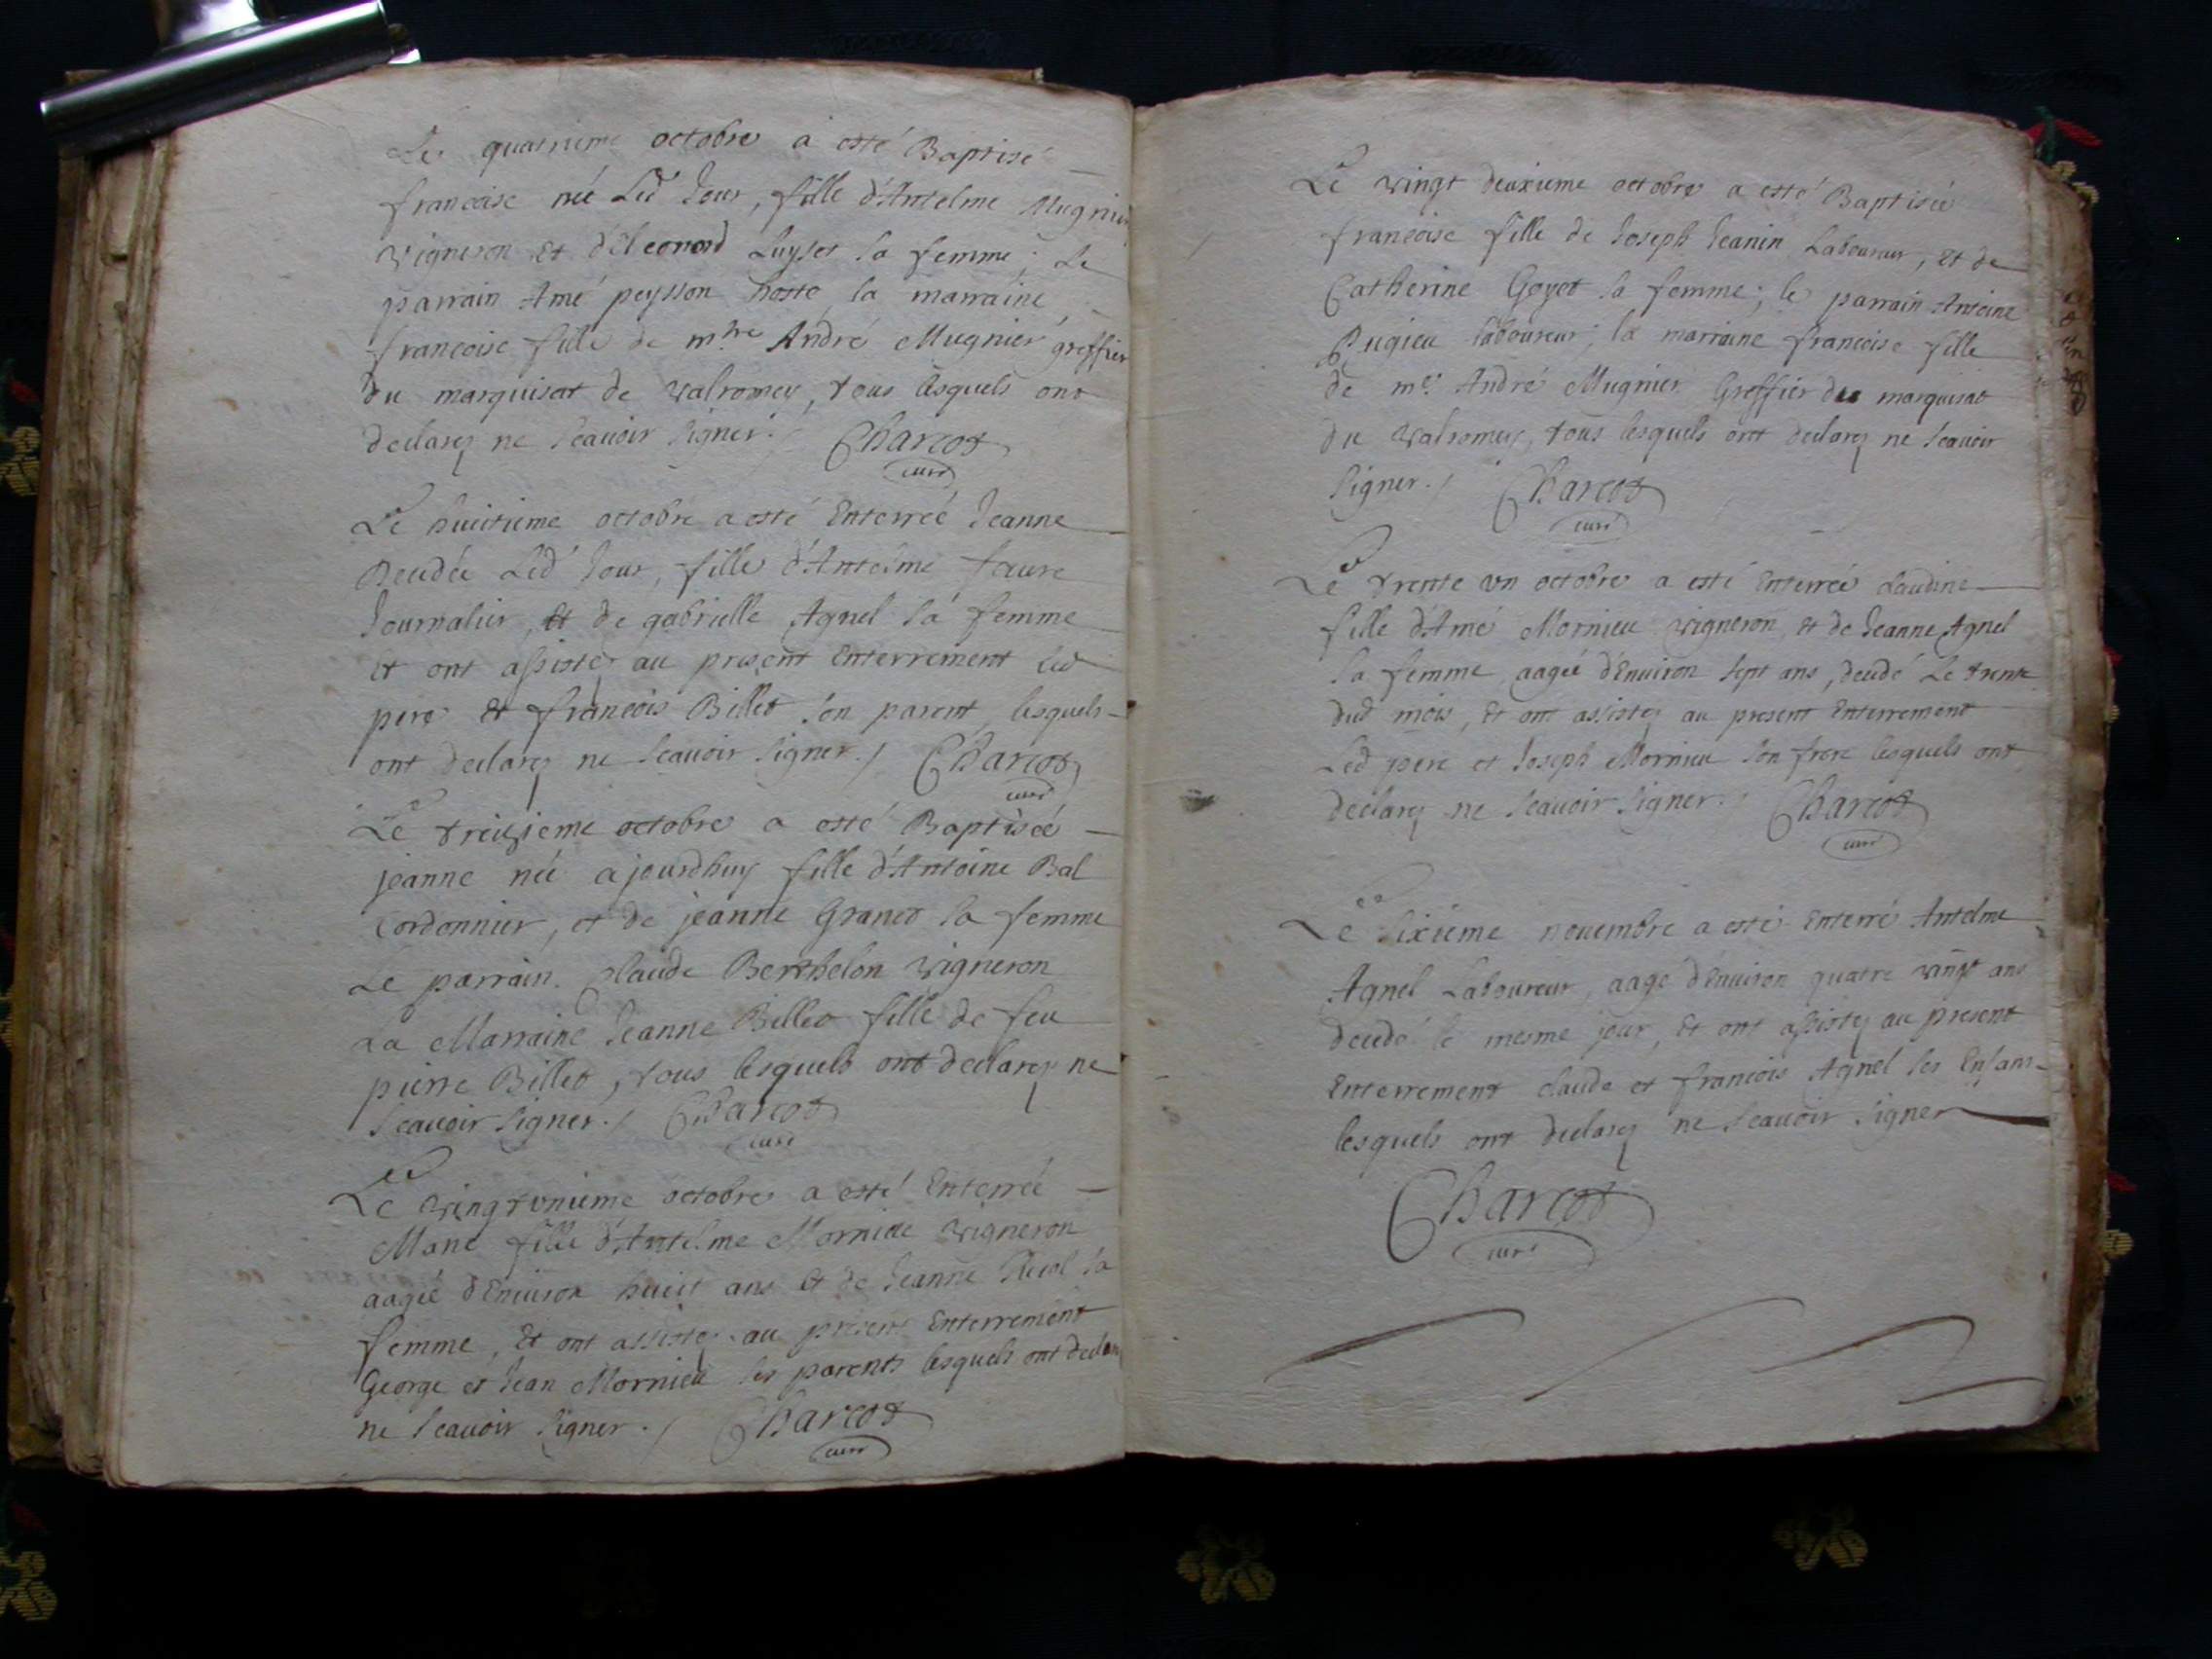 Le quatrieme octobre a esté Baptisé
francoise née Led Jour, fille d'Antelme Mugnier
vigneron Et d'Eleonord Luyset sa femme; Le
parrain Amé peysson hoste, la marraine
francoise fille de mtre André Mugnier greffier
du marquisat de valromey, tous lesquels ont
declarez ne scavoir signer./ Charcot
curé
Le huitieme octobre a esté Enterrée Jeanne
Decedée Led Jour, fille d'Antelme faure
Journalier, Et de gabrielle Agnel sa femme
Et ont assistez au present Enterrement Led
pere Et francois Billet son parent, lesquels
ont declarez ne scavoir signer./ Charcot
curé
Le treizieme octobre a esté Baptisée
jeanne née ajourdhuy fille d'Antoine Bal
Cordonnier, et de jeanne Granet sa femme
Le parrain Claude Berthelon vigneron
La Marraine Jeanne Billet fille de feu
pierre Billet, tous lesquels ont declarez ne
scavoir signer./ Charcot
curé
Le vingtunieme octobre a esté Enterrée
Marie fille d'Antelme Mornieu vigneron
aagée d'Environ huict ans Et de Jeanne sa
femme, Et ont assistez au present Enterrement
George et Jean Mornieu ses parents lesquels ont declarez
ne scavoir signer./ Charcot
curé
Le vingt deuxieme octobre a esté Baptisée
francoise fille de Joseph Jeanin Laboureur, Et de
Catherine Goyet sa femme; le parrain Antoine
Pugieu laboureur; la marraine francoise fille
de me André Mugnier Greffier du marquisat
du valromey, tous lesquels ont declarez ne scavoir
signer./ Charcot
curé
Le trente un octobre a esté Enterrée claudine
fille d'Amé Mornieu vigneron, et de Jeanne Agnel
sa femme, aagée d'Environ sept ans, decedé Le trente
dud mois, Et ont assistez au present Enterrement
Led pere et Joseph Mornieu son frere lesquels ont
declarez ne scavoir signer./ Charcot
curé
Le sixieme novembre a esté Enterré Antelme
Agnel Laboureur, aagé d'Environ quatre vingt ans
decedé le mesme jour, Et ont assistez au present
Enterrement claude et francois Agnel ses Enfans
lesquels ont declarez ne scavoir signer
Charcot
curé